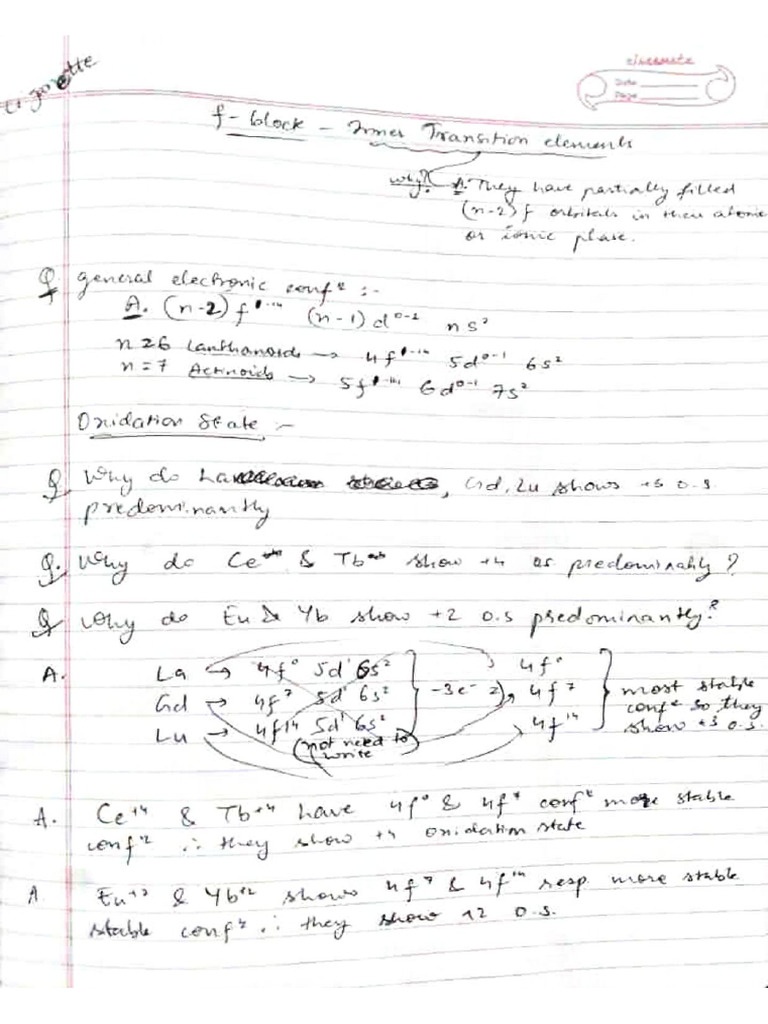 classmate
Date
Page
f-block - Inner Transition elements
why? A. They have partially filled
(n-2)f orbitals in their atomic
or ionic phase.
Q general electronic confⁿ :-
A. (n-2)f¹⁻¹⁴ (n-1)d⁰⁻¹ ns²
n=6 Lanthanoids → 4f¹⁻¹⁴ 5d⁰⁻¹ 6s²
n=7 Actinoids → 5f¹⁻¹⁴ 6d⁰⁻¹ 7s²
Oxidation State :-
Q Why do La, Gd, Lu shows +3 o.s.
predominantly
Q. Why do Ce & Tb show +4 os predominatly?
Q Why do Eu & Yb show +2 o.s predominantly?
A. La → 4f⁰ 5d¹ 6s² 4f⁰
Gd → 4f⁷ 5d¹ 6s² -3e⁻ 4f⁷ most stable
Lu → 4f¹⁴ 5d¹ 6s² 4f¹⁴ confⁿ so they
(not need to show +3 o.s.
write)
A. Ce⁺⁴ & Tb⁺⁴ have 4f⁰ & 4f⁷ confⁿ more stable
confⁿ ∴ they show +4 oxidation state
A. Eu⁺² & Yb⁺² shows 4f⁷ & 4f¹⁴ resp more stable
stable confⁿ ∴ they show +2 o.s.